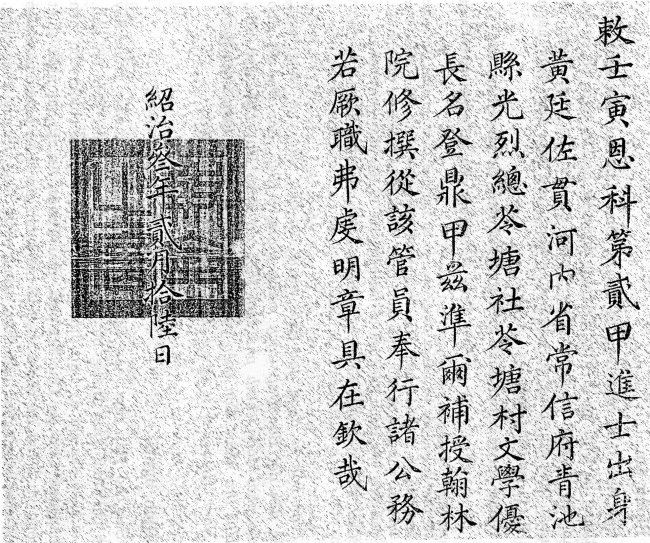 敕壬寅恩科第貳甲進士出身
黃廷佐貫河內省常信府青池
縣光烈總苓塘社苓塘村文學優
長名登鼎甲茲準爾補授翰林
院修撰從該管員奉行諸公務
若厥職弗虔明章具在欽哉
紹治叁年貳月拾陸日